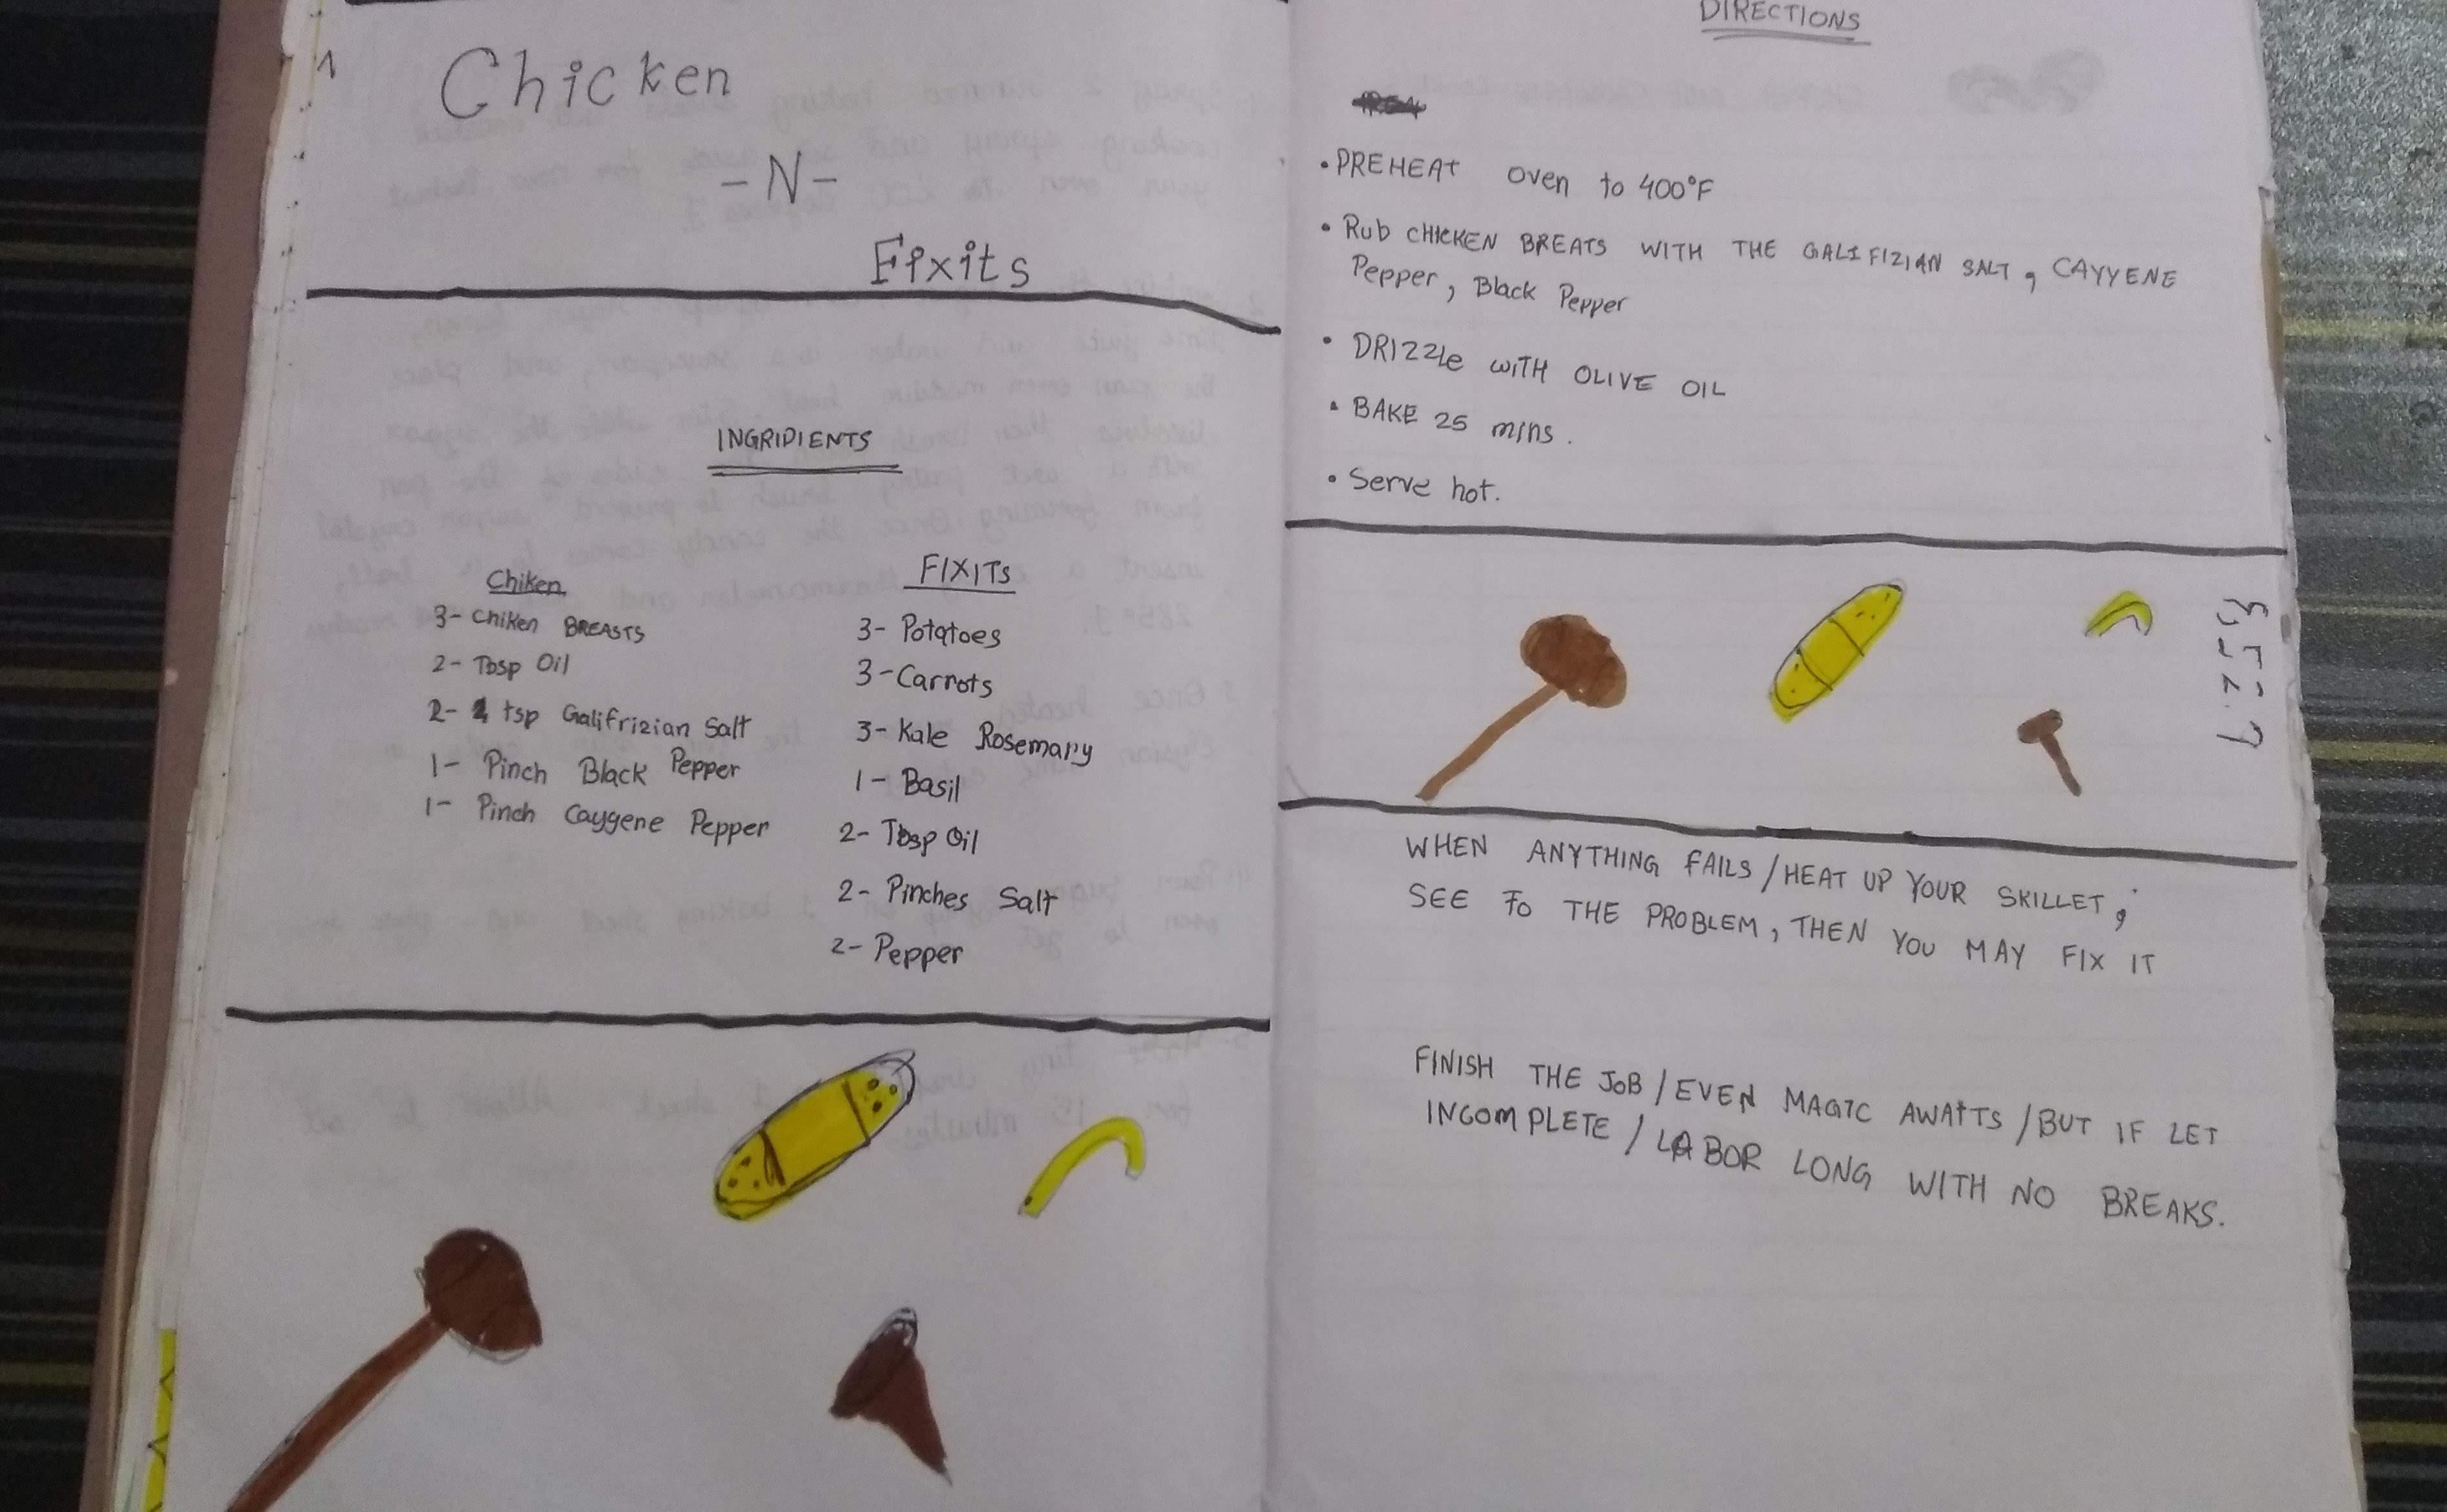 Chicken
-N-
Fixits
INGRIDIENTS
Chiken
3- Chiken BREASTS
2- Tbsp Oil
2- tsp Galifrizian Salt
1- Pinch Black Pepper
1- Pinch Caygene Pepper
FIXITs
3- Potatoes
3- Carrots
3- Kale Rosemary
1- Basil
2- Tbsp Oil
2- Pinches Salt
2- Pepper
DIRECTIONS
• PREHEAt oven to 400°F
• Rub CHICKEN BREATS WITH THE GALIFIZIAN SALT, CAYYENE
Pepper, Black Pepper
• DRIZZle wiTH OLIVE OIL
• BAKE 25 mins.
• Serve hot.
WHEN ANYTHING FAILS / HEAT UP YOUR SKILLET,
SEE TO THE PROBLEM, THEN YOU MAY FIX IT
FINISH THE JOB / EVEN MAGIC AWAITS / BUT IF LET
INCOMPLETE / LABOR LONG WITH NO BREAKS.